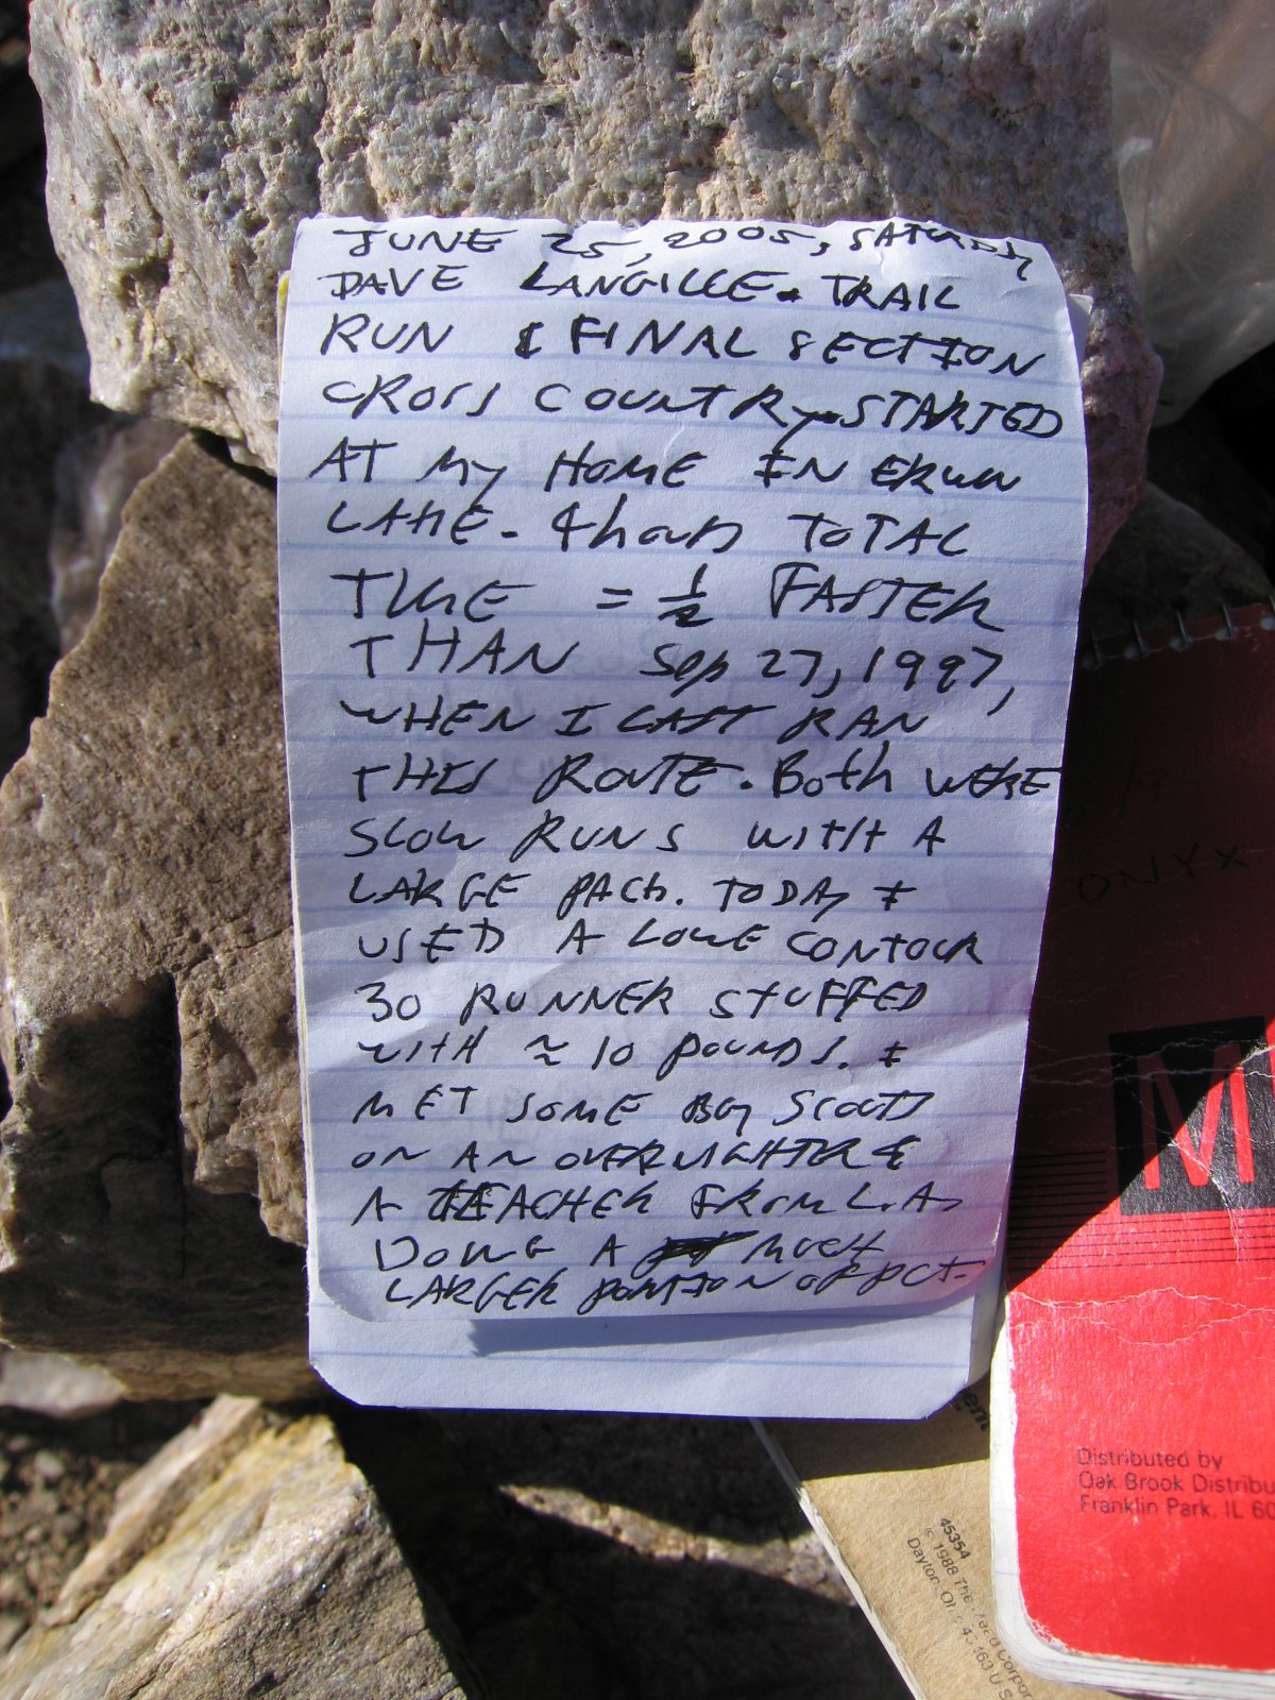 JUNE 25, 2005, SATURDAY
DAVE LANGILLE. TRAIL
RUN & FINAL SECTION
CROSS COUNTRY. STARTED
AT MY HOME IN ERWIN
LAKE. 4 hours TOTAL
TIME = 1/2 FASTER
THAN Sep 27, 1997,
WHEN I LAST RAN
THIS ROUTE. Both WERE
SLOW RUNS WITH A
LARGE PACK. TODAY I
USED A LOWE CONTOUR
30 RUNNER STUFFED
WITH ≈ 10 POUNDS. I
MET SOME BOY SCOUTS
ON AN OVERNIGHTER &
A TEACHER FROM L.A.
DOING A MUCH
LARGER PORTION OF PCT.
ONYX
M
Distributed by
Oak Brook Distribu
Franklin Park, IL 60
45354
© 1988 The Mead Corpor
Dayton, Oh 45463 U.S